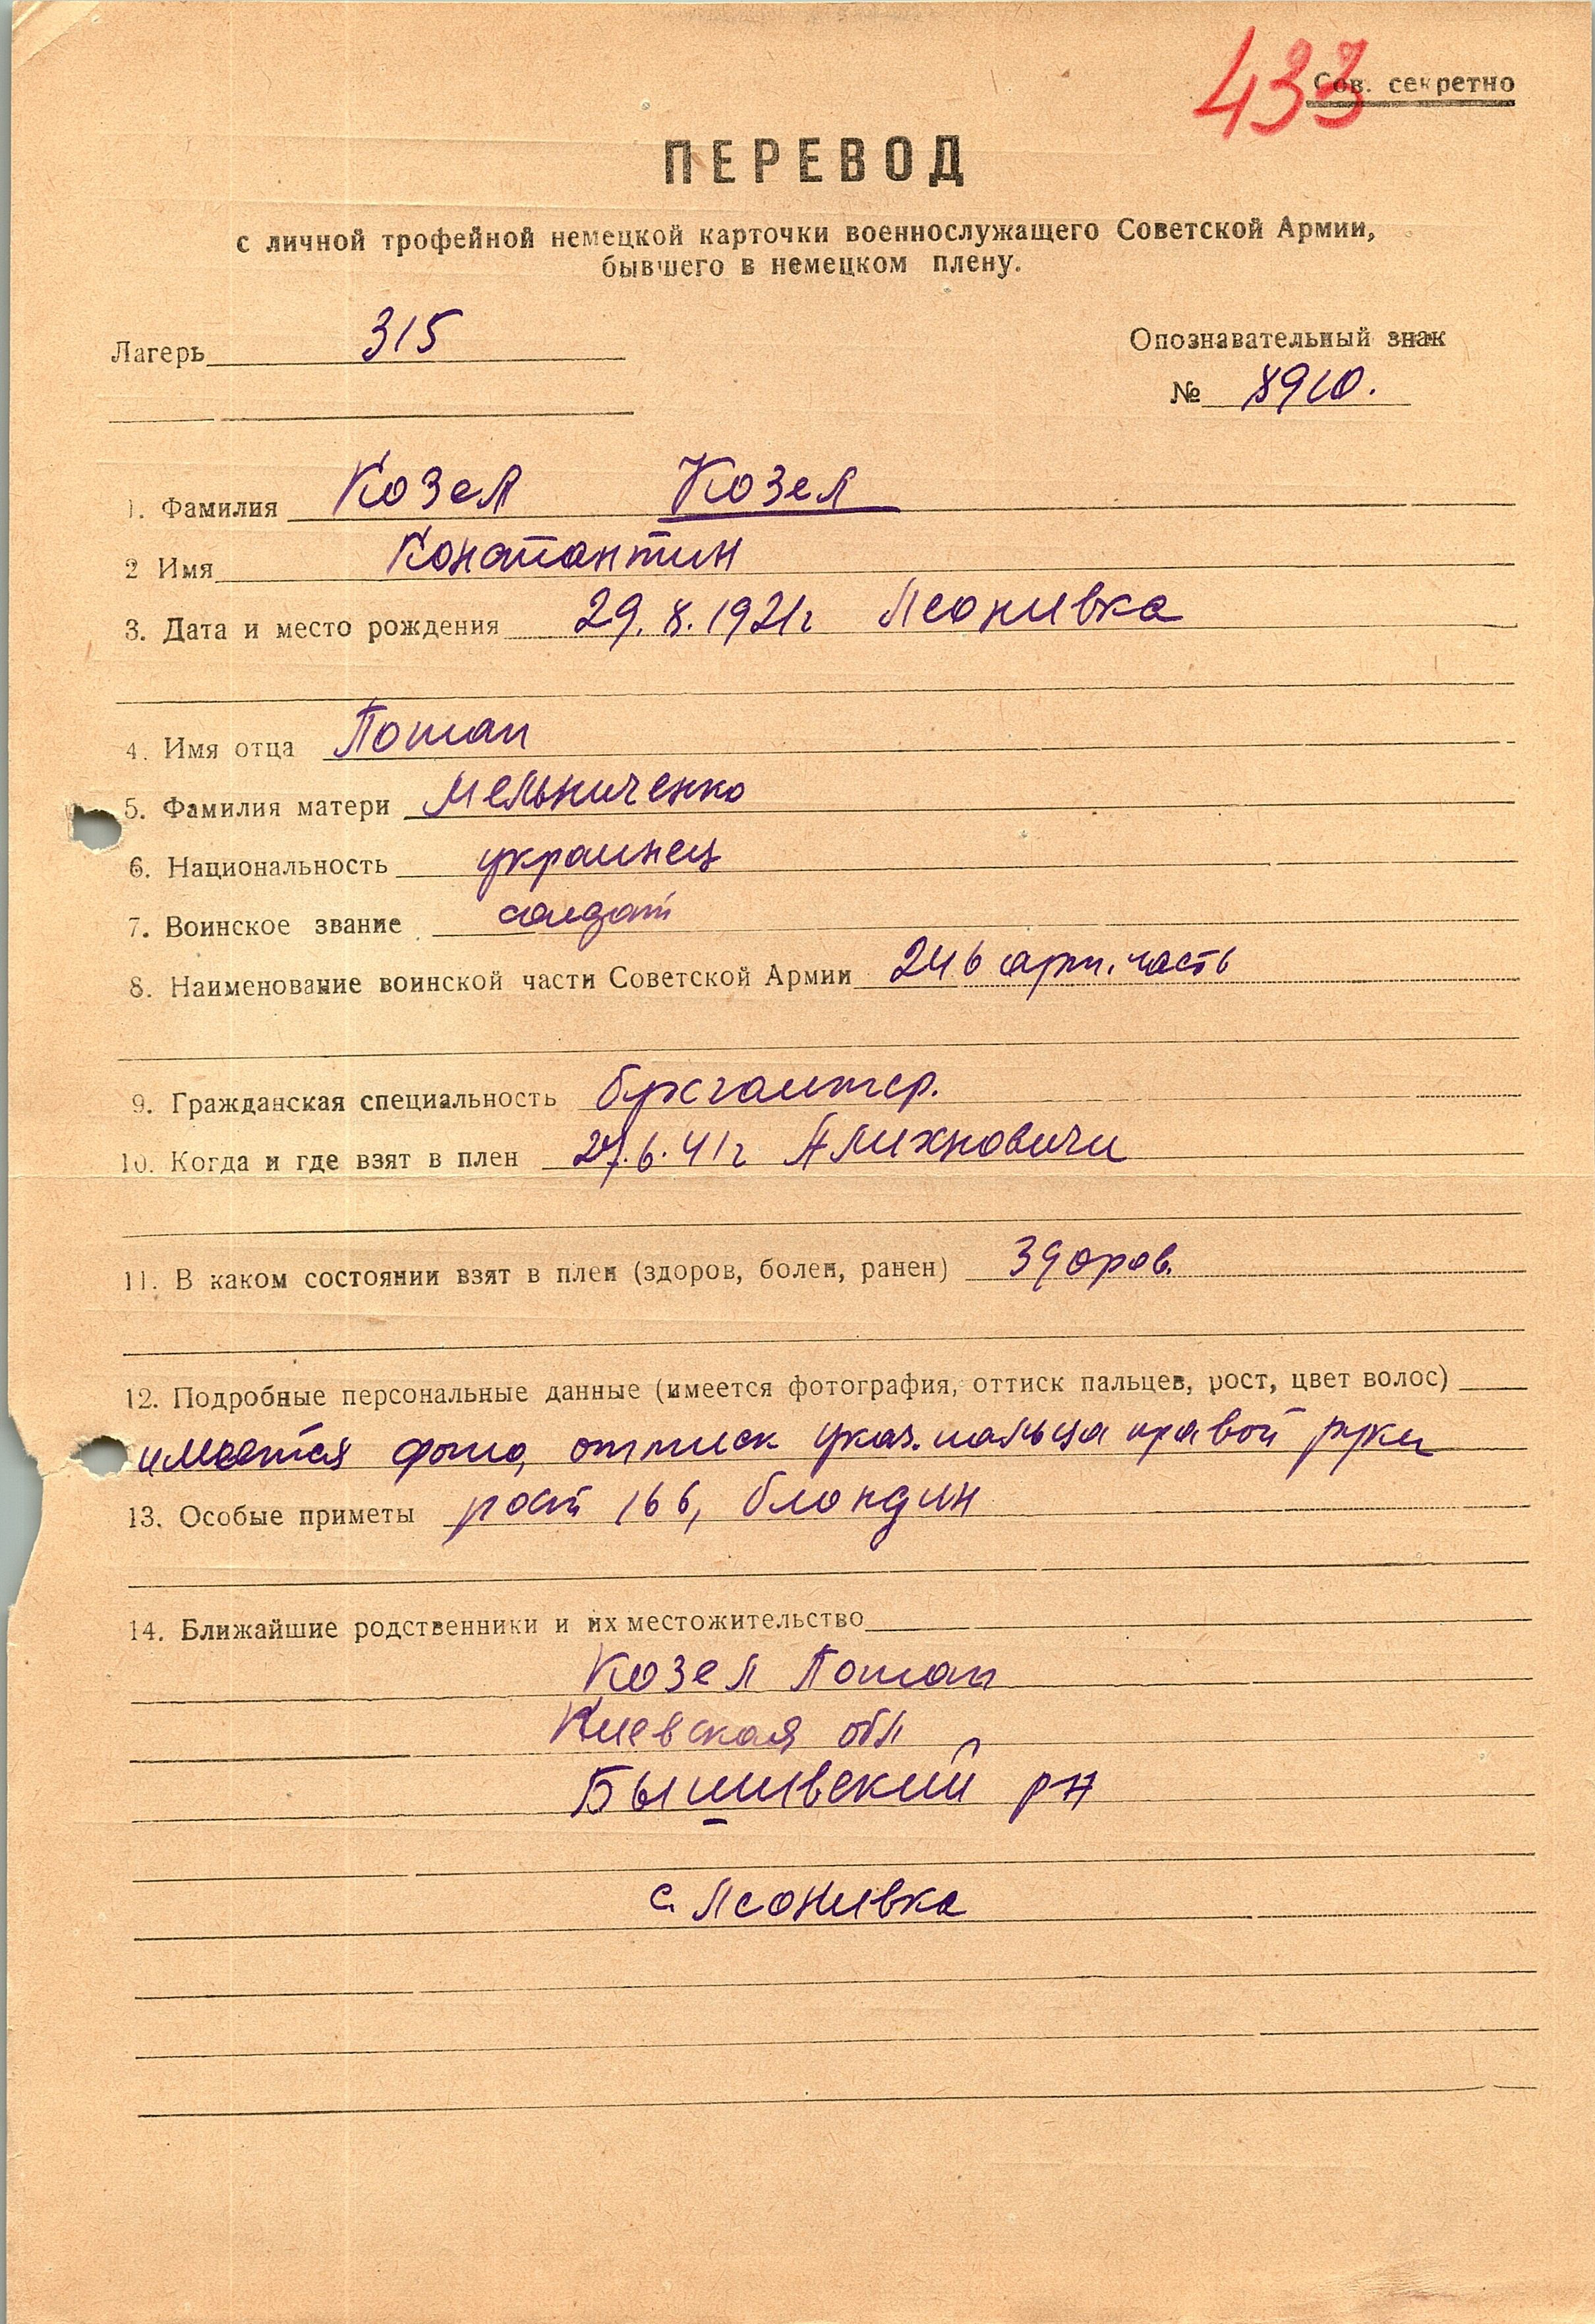 433
Сов. секретно
ПЕРЕВОД
с личной трофейной немецкой карточки военнослужащего Советской Армии,
бывшего в немецком плену.
Лагерь 315
Опознавательный знак
№ 8910.
1. Фамилия Козел Козел
2 Имя Константин
3. Дата и место рождения 29.8.1921г Леонивка
4. Имя отца Потап
5. Фамилия матери Мельниченко
6. Национальность украинец
7. Воинское звание солдат
8. Наименование воинской части Советской Армии 246 арт. часть
9. Гражданская специальность бухгалтер.
10. Когда и где взят в плен 27.6.41г
11. В каком состоянии взят в плен (здоров, болен, ранен) Здоров.
12. Подробные персональные данные (имеется фотография, оттиск пальцев, рост, цвет волос)
имеется фото, оттиск указ. пальца правой руки
13. Особые приметы рост 166, блондин
14. Ближайшие родственники и их местожительство
Козел Потап
Киевская обл
Бышивский рн
с. Леонивка